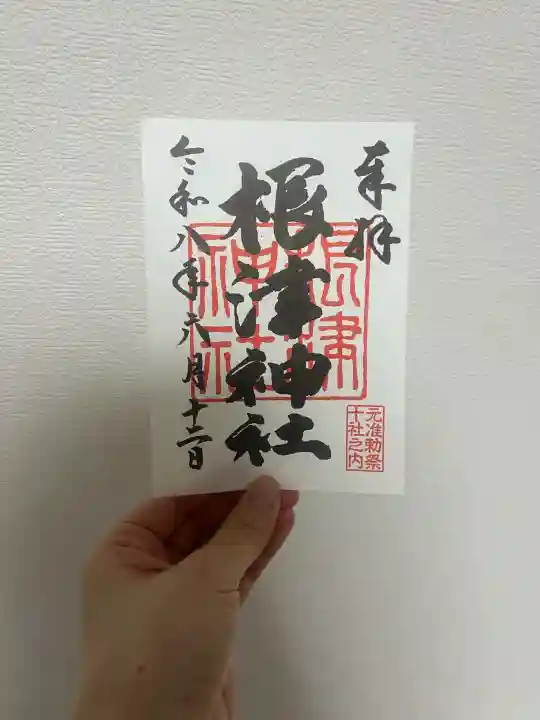 奉拝
根津神社
令和八年六月十二日
根津
神社
元准勅祭
十社之内